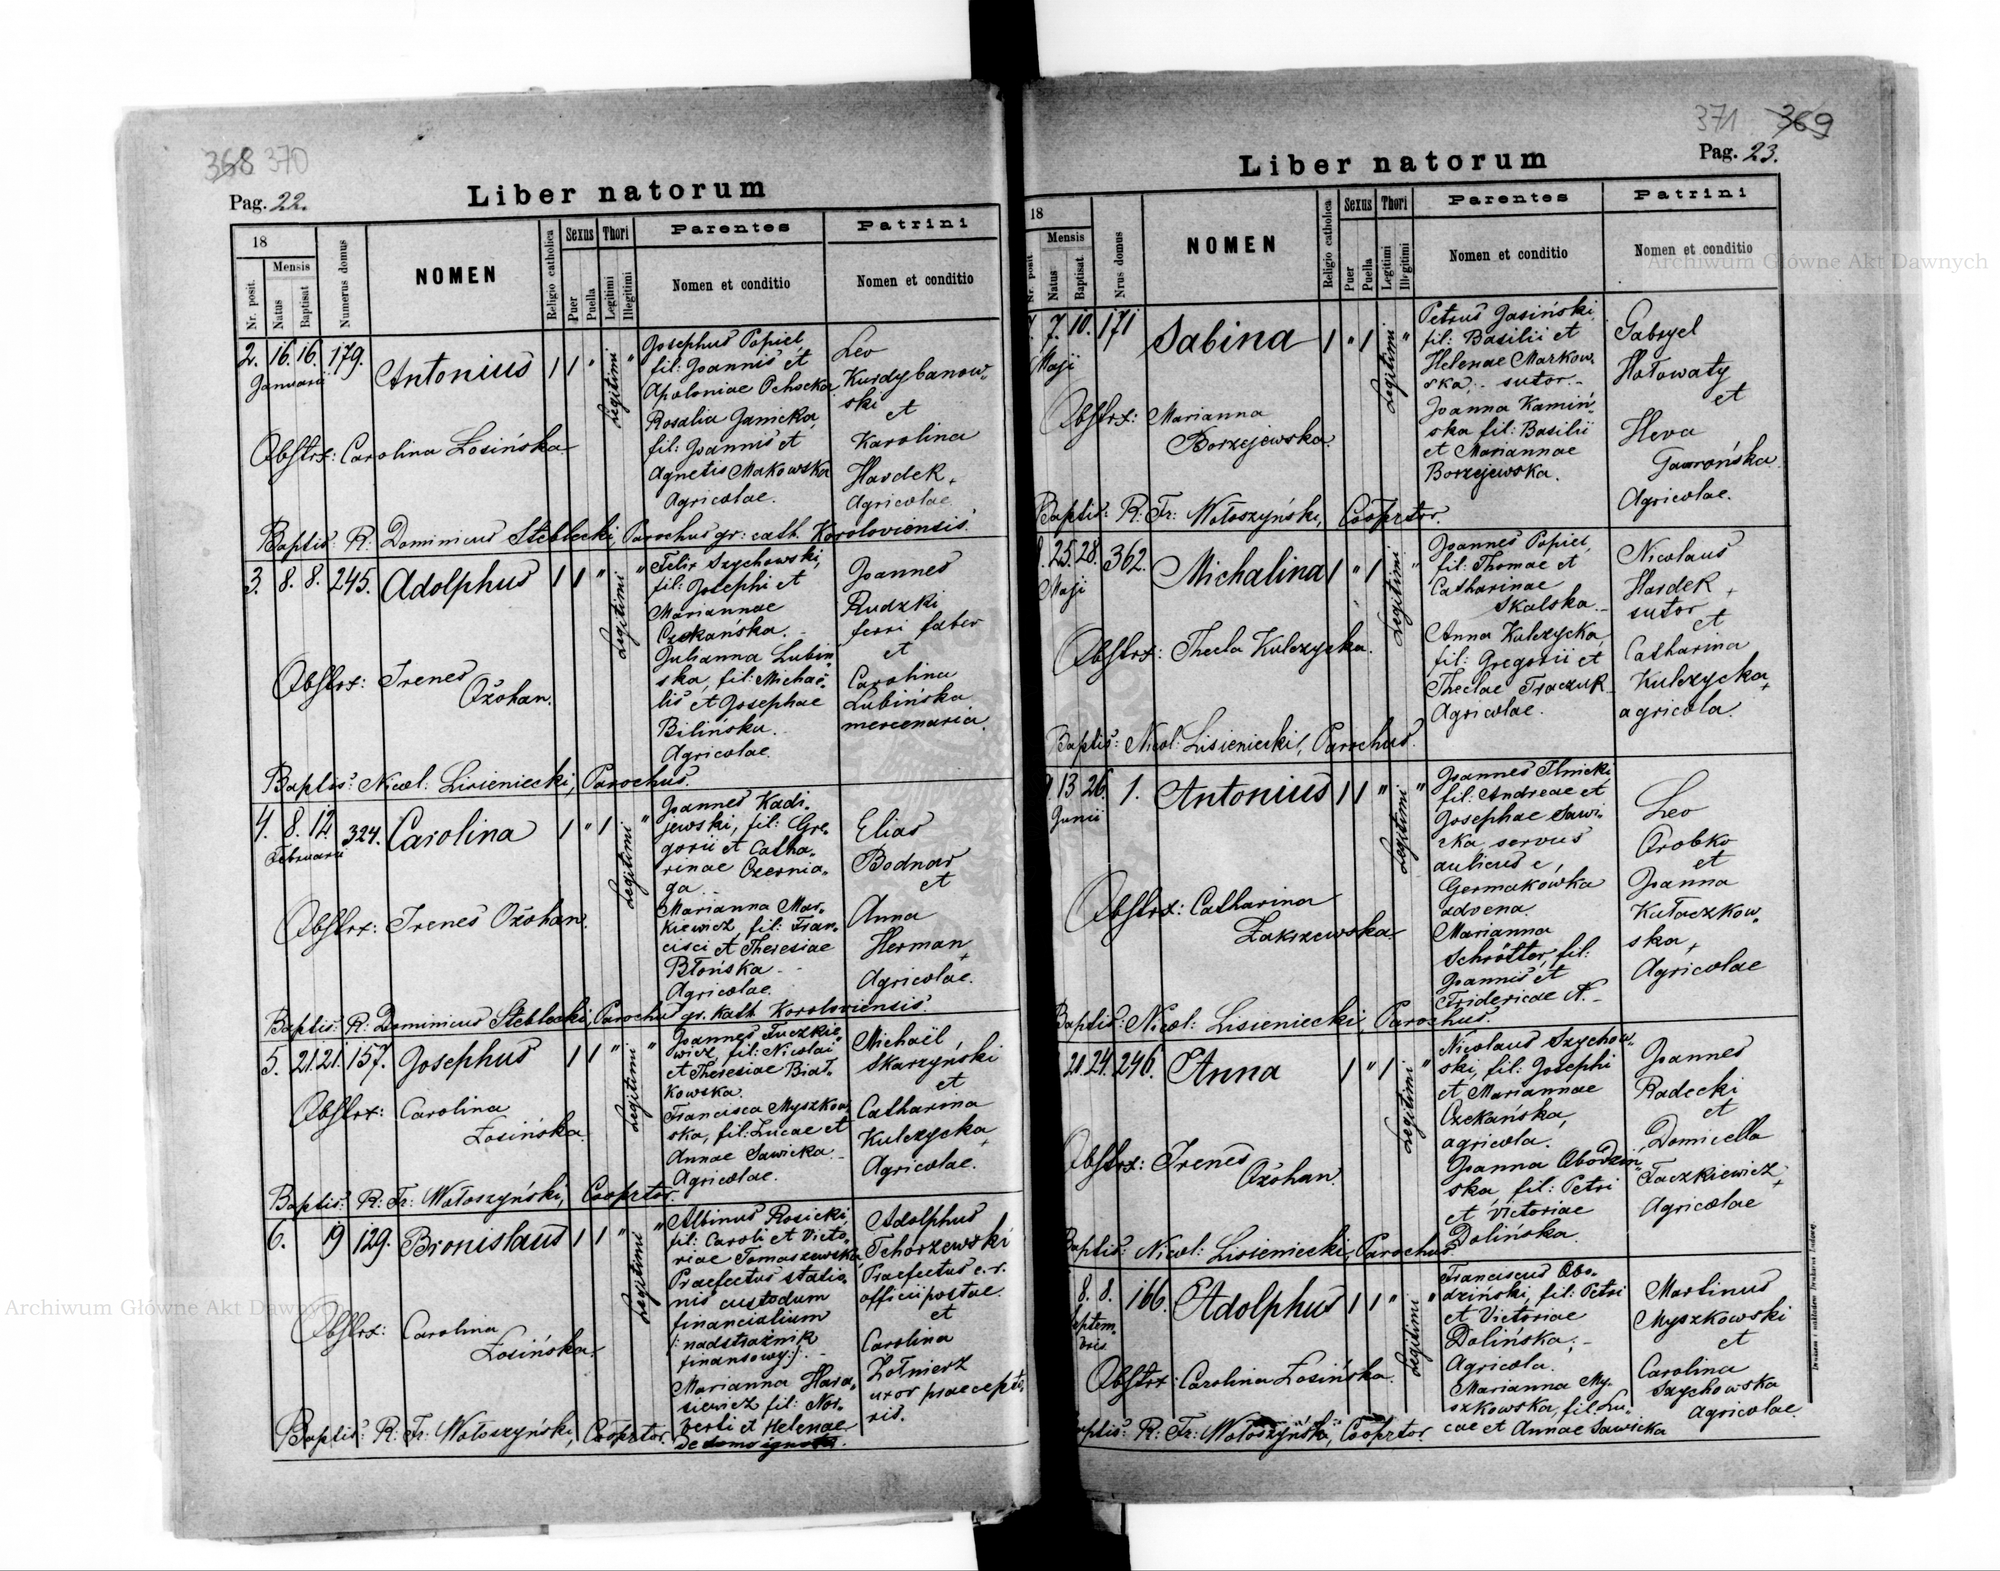 368 370
Pag. 22.
Liber natorum
18
Mensis
Nr. posit.
Natus
Baptisat
Numerus domus
NOMEN
Religio catholica
Sexus
Puer
Puella
Thori
Legitimi
Illegitimi
Parentes
Nomen et conditio
Patrini
Nomen et conditio
2. 16. 16. 179. Antonius 1 1 "
Januarii
Legitimi "
Josephus Popiel,
fil: Joannis et
Apoloniae Ochocka
Rosalia Janicka,
fil: Joannis et
Agnetis Makowska
Agricolae.
Leo
Kurdybanow-
ski
et
Karolina
Hardek +
Agricolae
Obstrx: Carolina Łosińska
Baptis: R: Dominicus Steblecki, Parochus gr: cath. Koroloviensis.
3. 8. 8. 245. Adolphus 1 1 "
Legitimi "
Felix Szychowski,
fil: Josephi et
Mariannae
Czekańska.
Julianna Lubiń
ska, fil: Michaë-
lis et Josephae
Bilińska.
Agricolae.
Joannes
Rudzki
ferri faber
et
Carolina
Lubińska
mercenaria.
Obstrx: Irenes
Ożohan.
Baptis: Nicol: Lisieniecki, Parochus.
4. 8. 12 324. Carolina 1 " 1
Februarii
Legitimi "
Joannes Kadi-
jewski, fil: Gre-
gorii et Catha-
rinae Czernia-
ga
Marianna Mar-
kiewicz, fil: Fran-
cisci et Theresiae
Błońska
Agricolae.
Elias
Bodnar
et
Anna
Herman +
Agricolae.
Obstrx: Irenes Ożohan.
Baptis: R: Dominicus Steblecki, Parochus gr. kath Koroloviensis.
5. 21. 21. 157. Josephus 1 1 "
Legitimi "
Joannes Fuczkie
wicz, fil: Nicolai
et Theresiae Biał-
kowska.
Francisca Myszkow
ska, fil: Lucae et
Annae Sawicka.
Agricolae.
Michaël
Skarzyński
et
Catharina
Kulczycka +
Agricolae.
Obstrx: Carolina
Łosińska
Baptis: R: Fr: Wołoszyński, Cooprtor.
6. 19 129. Bronislaus 1 1 "
Legitimi "
Albinus Rosicki,
fil: Caroli et Victo-
riae Tomaszewska,
Praefectus statio-
nis custodum
financialium
/: nadstrażnik
finansowy :/.
Marianna Hara-
siewicz fil: Nor-
berti et Helenae
de domo ignota.
Adolphus
Tchorzewski
Praefectus c. r.
officii postae.
et
Carolina
Żołnierz
uxor praecepto
ris.
Obstrx: Carolina
Łosińska.
Baptis: R: Fr: Wołoszyński, Cooprtor.
371 369
Pag. 23.
Liber natorum
18
Mensis
Nr. posit.
Natus
Baptisat.
Nrus domus
NOMEN
Religio catholica
Sexus
Puer
Puella
Thori
Legitimi
Illegitimi
Parentes
Nomen et conditio
Patrini
Nomen et conditio
7. 7. 10. 171 Sabina 1 " 1
Maji
Legitimi "
Petrus Jasiński,
fil: Basilii et
Helenae Markow-
ska. sutor.
Joanna Kamiń-
ska fil: Basilii
et Mariannae
Borzejewska.
Gabryel
Hołowaty
et
Heva
Gawrońska
Agricolae.
Obstrx: Marianna
Borzejewska.
Baptis: R: Fr: Wołoszyński, Cooprtor.
8. 25. 28. 362. Michalina 1 " 1
Maji
Legitimi "
Joannes Popiel,
fil: Thomae et
Catharinae
Skalska.
Anna Kulczycka
fil: Gregorii et
Theclae Traczuk
Agricolae.
Nicolaus
Hardek +
sutor
et
Catharina
Kulczycka +
agricola.
Obstrx: Thecla Kulczycka.
Baptis: Nicol: Lisieniecki, Parochus.
9 13 26. 1. Antonius 1 1 "
Junii
Legitimi "
Joannes Ilnicki,
fil: Andreae et
Josephae Sawi-
cka, servus
aulicus e,
Germakówka
advena.
Marianna
Schrötter, fil:
Joannis et
Fridericae N.
Leo
Orobko
et
Joanna
Kułaczkow-
ska +
Agricolae
Obstrx: Catharina
Zakrzewska
Baptis: Nicol: Lisieniecki, Parochus.
21. 24. 246. Anna 1 " 1
Legitimi "
Nicolaus Szychow-
ski, fil: Josephi
et Mariannae
Czekańska,
agricola.
Joanna Obodziń
ska, fil: Petri
et Victoriae
Dolińska.
Joannes
Radecki
et
Domicella
Faczkiewicz +
Agricolae
Obstrx: Irenes
Ożohan.
Baptis: Nicol: Lisieniecki, Parochus.
8. 8. 166. Adolphus 1 1 "
Septem-
bris
Legitimi
Franciscus Obo-
dziński, fil: Petri
et Victoriae
Dolińska,
Agricola.
Marianna My-
szkowska, fil: Lu-
cae et Annae Sawicka
Martinus
Myszkowski
et
Carolina
Szychowska
Agricolae.
Obstrx: Carolina Łosińska.
Baptis: R: Fr: Wołoszyński, Cooprtor.
Archiwum Główne Akt Dawnych
Archiwum Główne Akt Dawnych